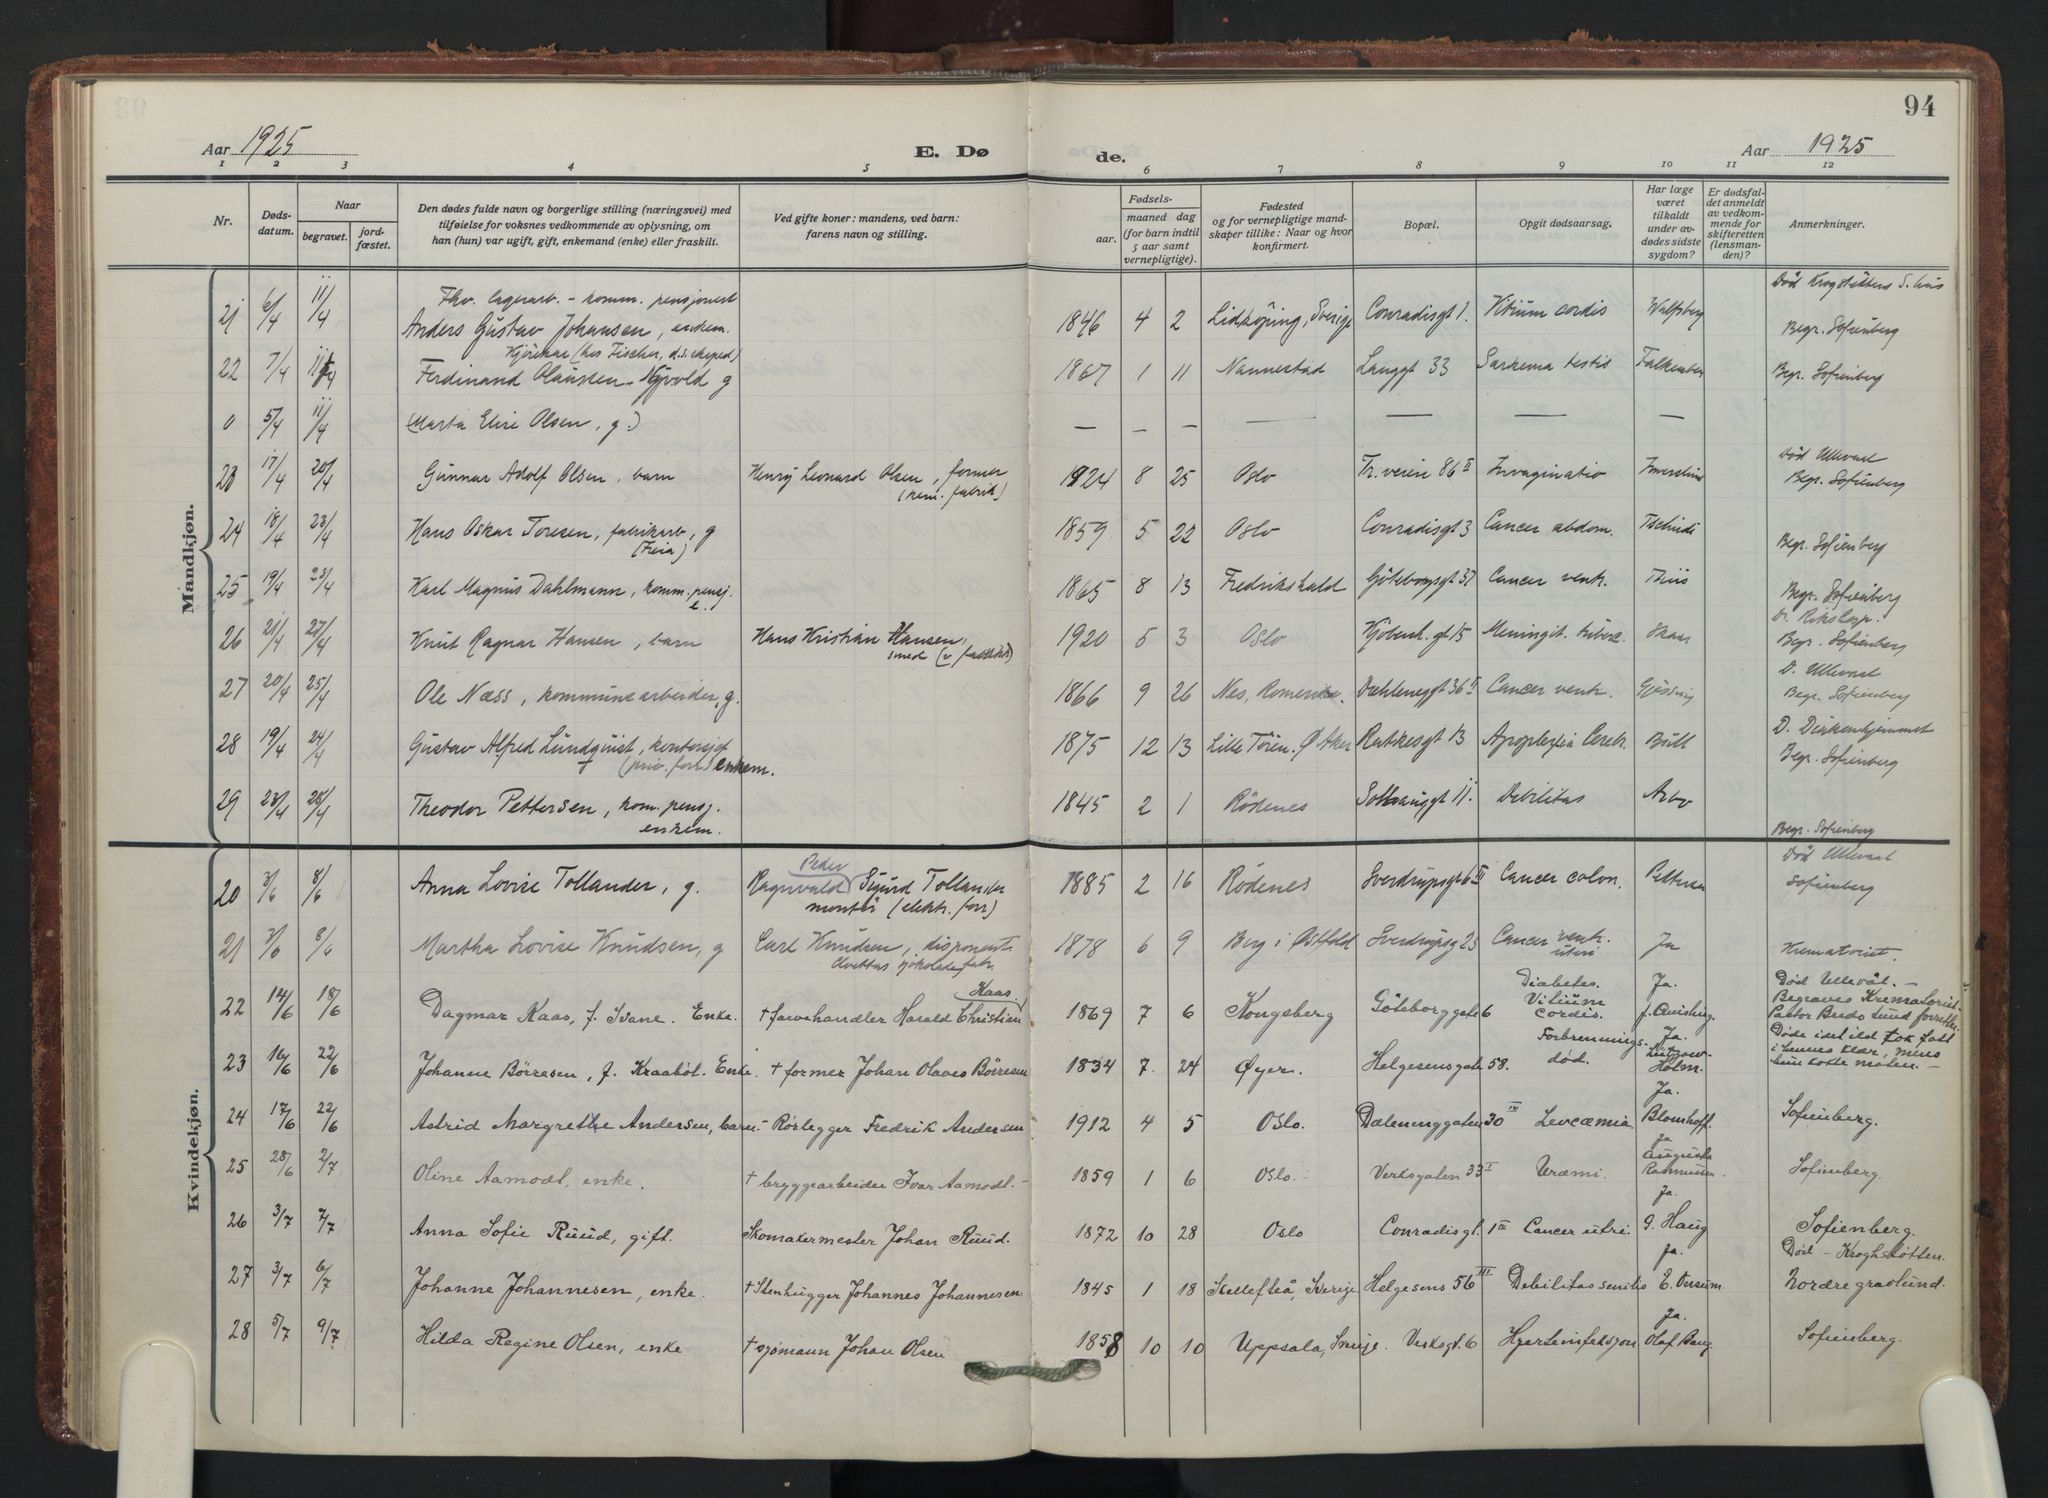 94
Aar 1925
E. Dø
de.
Aar 1925
1 2 3 4 5 6 7 8 9 10 11 12
Nr.
Døds-
datum.
Naar
begravet.
jord-
fæstet.
Den dødes fulde navn og borgerlige stilling (næringsvei) med
tilføielse for voksnes vedkommende av oplysning, om
han (hun) var ugift, gift, enkemand (enke) eller fraskilt.
Ved gifte koner: mandens, ved barn:
farens navn og stilling.
Fødsels-
aar.
maaned dag
(for barn indtil
5 aar samt
vernepligtige).
Fødested
og for vernepligtige mand-
skaper tillike: Naar og hvor
konfirmert.
Bopæl.
Opgit dødsaarsag.
Har læge
været
tilkaldt
under av-
dødes sidste
sygdom?
Er dødsfal-
det anmeldt
av vedkom-
mende for
skifteretten
(lensman-
den)?
Anmerkninger.
Mandkjøn.
Fhv. lagerarb. - komm. pensjonert Død Krogstøttens S.hus
21 6/4 11/4 Anders Gustav Johansen, enkem. 1846 4 2 Lidköping, Sverige Conradisgt 1. Vitium cordis Begr. Sofienberg
Kjørekar (hos Fischer, d.s. eksped)
22 7/4 11/4 Ferdinand Olaussen Nyvold g 1867 1 11 Nannestad Langgt 33 Sarkema testis Begr. Sofienberg
0 5/4 11/4 (Marta Elise Olsen, g.) — — — — — — —
Død Ullevaal
23 17/4 20/4 Gunnar Adolf Olsen, barn Henry Leonard Olsen, former 1924 8 25 Oslo Tr. veien 86 II Invaginatio Begr. Sofienberg
(kem. fabrik)
24 18/4 23/4 Hans Oskar Toresen, fabrikarb, g 1859 5 22 Oslo Conradisgt 3 Cancer abdom. Tschudi Begr. Sofienberg
(Freia)
25 19/4 23/4 Karl Magnus Dahlmann, komm. pensj. 1865 8 13 Fredrikshald Göteborgsgt 37 Cancer ventr. Thiis Begr. Sofienberg
e.
D. Rikshosp.
26 21/4 27/4 Knut Ragnar Hansen, barn Hans Kristian Hansen, 1920 5 3 Oslo Kjöbenh. gt 15 Meningit. tuberc. Skaar Begr. Sofienberg
smed
D. Ullevaal
27 20/4 25/4 Ole Næss, kommunearbeider, g. 1866 9 26 Nes, Romerike. Dælenenggt 36 II Cancer ventr. Begr. Sofienberg
28 19/4 24/4 Gustav Alfred Lundquist, kontorsjef 1875 12 13 Lille Tören. Ø Aker Ratkesgt 13 Apoplexia Cerebr. Bull D. Diakonhjemmet
(priv. forr) enkem. Begr. Sofienberg
29 23/4 28/4 Theodor Pettersen, kom. pensj. 1845 2 1 Rödenes Sofienberggt 11. Debilitas Arbo
enkem. Begr. Sofienberg
Kvindekjøn.
Peder Død Ullevaal.
20 3/6 8/6 Anna Lovise Tollander, g. Ragnvald Sigurd Tollander 1885 2 16 Rödenes Sverdrupsgt 6 III Cancer colon. Pettersen Sofienberg
montør (elektr. forr)
21 3/6 8/6 Martha Lovise Knudsen, g Carl Knudsen, disponent 1878 6 9 Berg i Østfold Sverdrupsg 23 Cancer ventr. Ja Krematoriet.
sjokoladefabr. uteri
Kaas Diabetes. Ja. Død Ullevål. —
22 14/6 18/6 Dagmar Kaas, f. Svane. Enke. † farvehandler Harald Christian 1869 7 6 Kongsberg Göteborggate 6 Vitium cordis. J. Quisling. Begraves Krematoriet.
Pastor Bredo Lund forretter.
Forbrennings- Ja. Døde idet ild tok fatt
23 16/6 22/6 Johanne Börresen, f. Kraaböl. Enke. † former Johan Olaves Börresen 1834 7 24 Øyer. Helgesensgate 58. død. Lützow-Holm. i hennes klær, mens
hun kokte maten. —
Ja.
24 17/6 22/6 Astrid Margrethe Andersen, barn. — Rörlegger Fredrik Andersen 1912 4 5 Oslo. Dælenenggaten 30 IV Levcæmia. Blomhoff. Sofienberg.
ja
25 28/6 2/7 Oline Aamodt, enke. † bryggearbeider Ivar Aamodt. — 1859 1 6 Oslo. — Verksgaten 33 I Uræmi. Augusta Rasmussen Sofienberg.
Ja.
26 3/7 7/7 Anna Sofie Ruud, gift. Skomakermester Johan Ruud. 1872 10 28 Oslo Conradisgt. 1 II Cancer utri. G. Haug Sofienberg.
ja. Död — Kroghstötten.
27 3/7 6/7 Johanne Johannesen, enke. † Stenhugger Johannes Johannesen. 1845 1 18 Skellefteå, Sverige Helgesens 56 III Debilitas senilis E. Onsum. Nordre gravlund.
Ja.
28 5/7 9/7 Hilda Regine Olsen, enke † sjømann Johan Olsen 1858 10 10 Uppsala, Sverige. Verksgt. 6 Hjerteinfeksjon Olaf Bang Sofienberg.